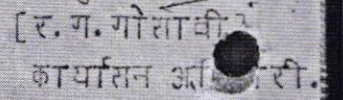 [र. ग. गोसावी
कार्यासन